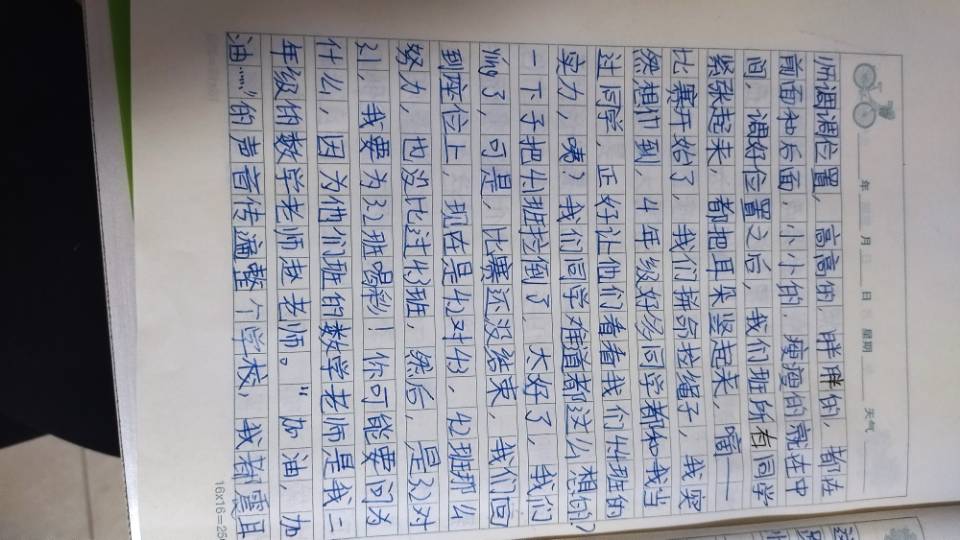 年 月 日 星期 天气
师调调位置,高高的,胖胖的,都在
前面和后面,小小的,瘦瘦的就在中
间,调好位置之后,我们班所有同学
紧张起来,都把耳朵竖起来,嘡——
比赛开始了,我们拼命拉绳子,我突
然想到,4年级好多同学都和我当
过同学,正好让他们看看我们4.1班的
实力,咦?我们同学难道都这么想的?
一下子把4.1班拉倒了,太好了,我们
ying了,可是,比赛还没结束,我们回
到座位上,现在是4.2对4.3,4.2班那么
努力,也没比过4.3班,然后,是3.2对
3.1,我要为3.2班喝彩!你可能要问为
什么,因为他们班的数学老师是我三
年级的数学老师 老师。“加油,加
油……”的声音传遍整个学校,我都震耳
16x16=256